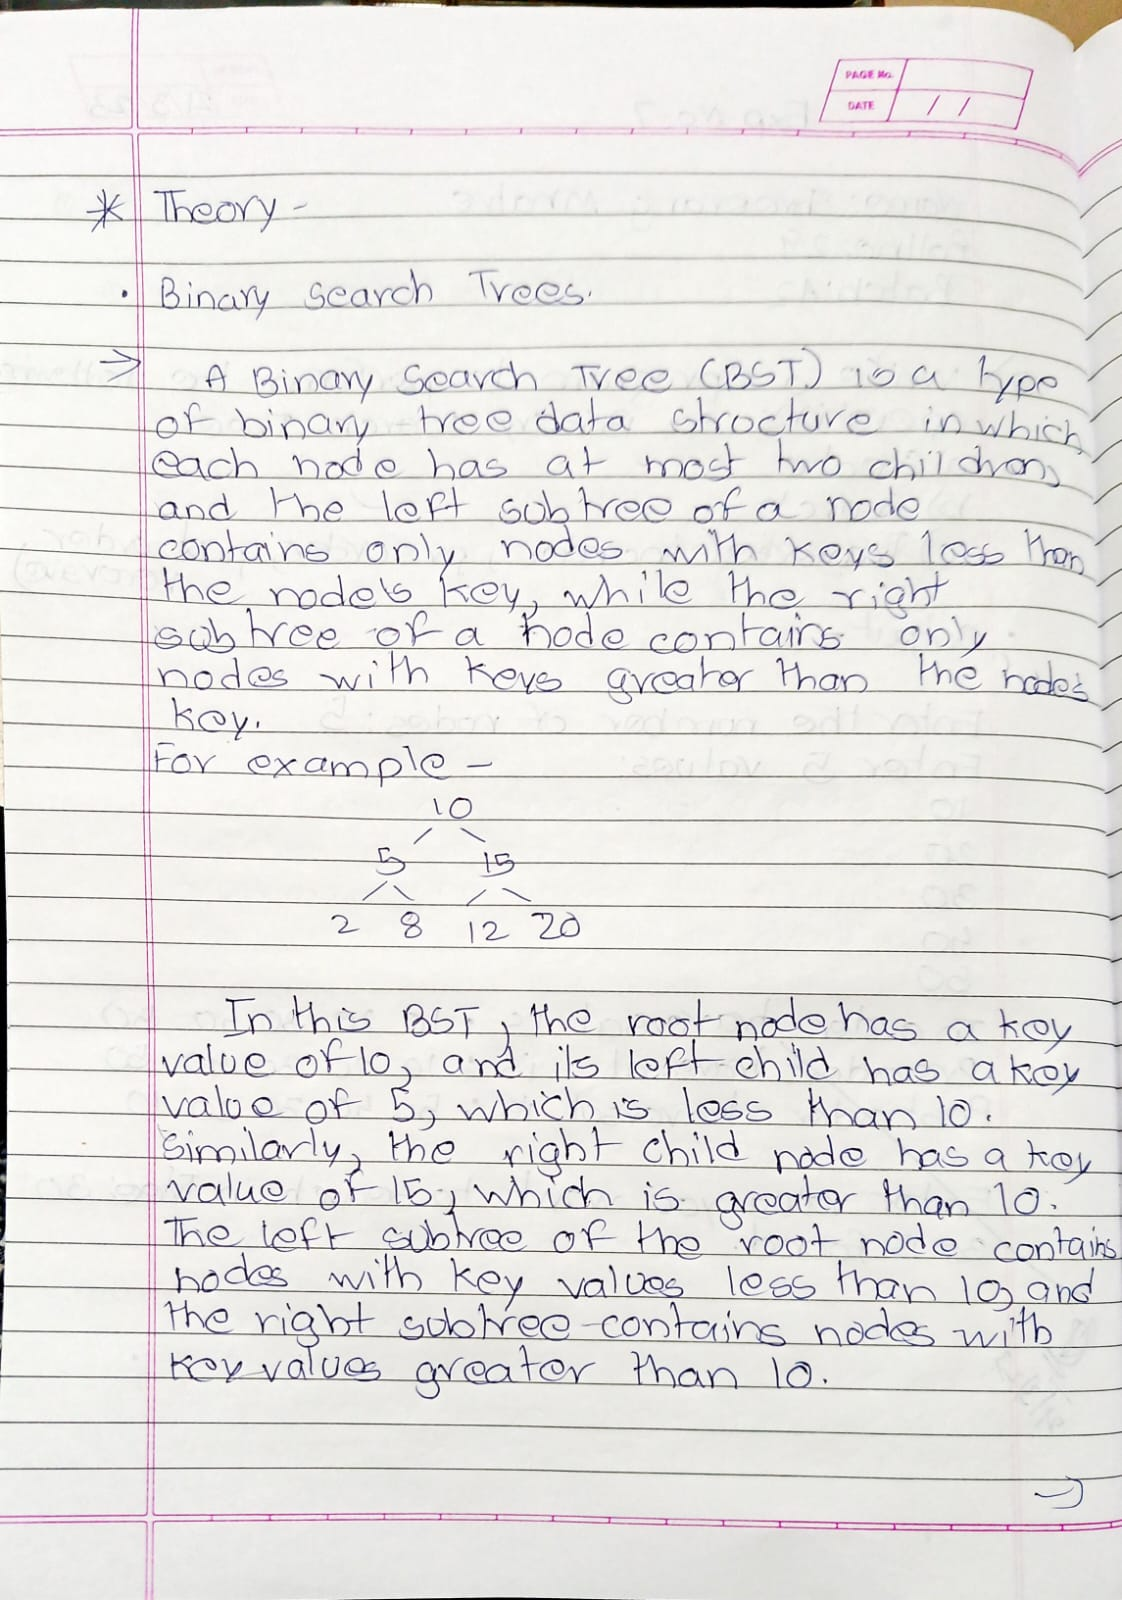 PAGE No.
DATE / /
* Theory -
· Binary Search Trees.
→ A Binary Search Tree (BST) is a type
of binary tree data structure in which
each node has at most two children,
and the left subtree of a node
contains only nodes with keys less than
the node's key, while the right
subtree of a node contains only
nodes with keys greater than the node's
key.
For example -
10
5 15
2 8 12 20
In this BST, the root node has a key
value of 10, and its left child has a key
value of 5, which is less than 10.
Similarly, the right child node has a key
value of 15, which is greater than 10.
The left subtree of the root node contains
nodes with key values less than 10, and
the right subtree contains nodes with
key values greater than 10.